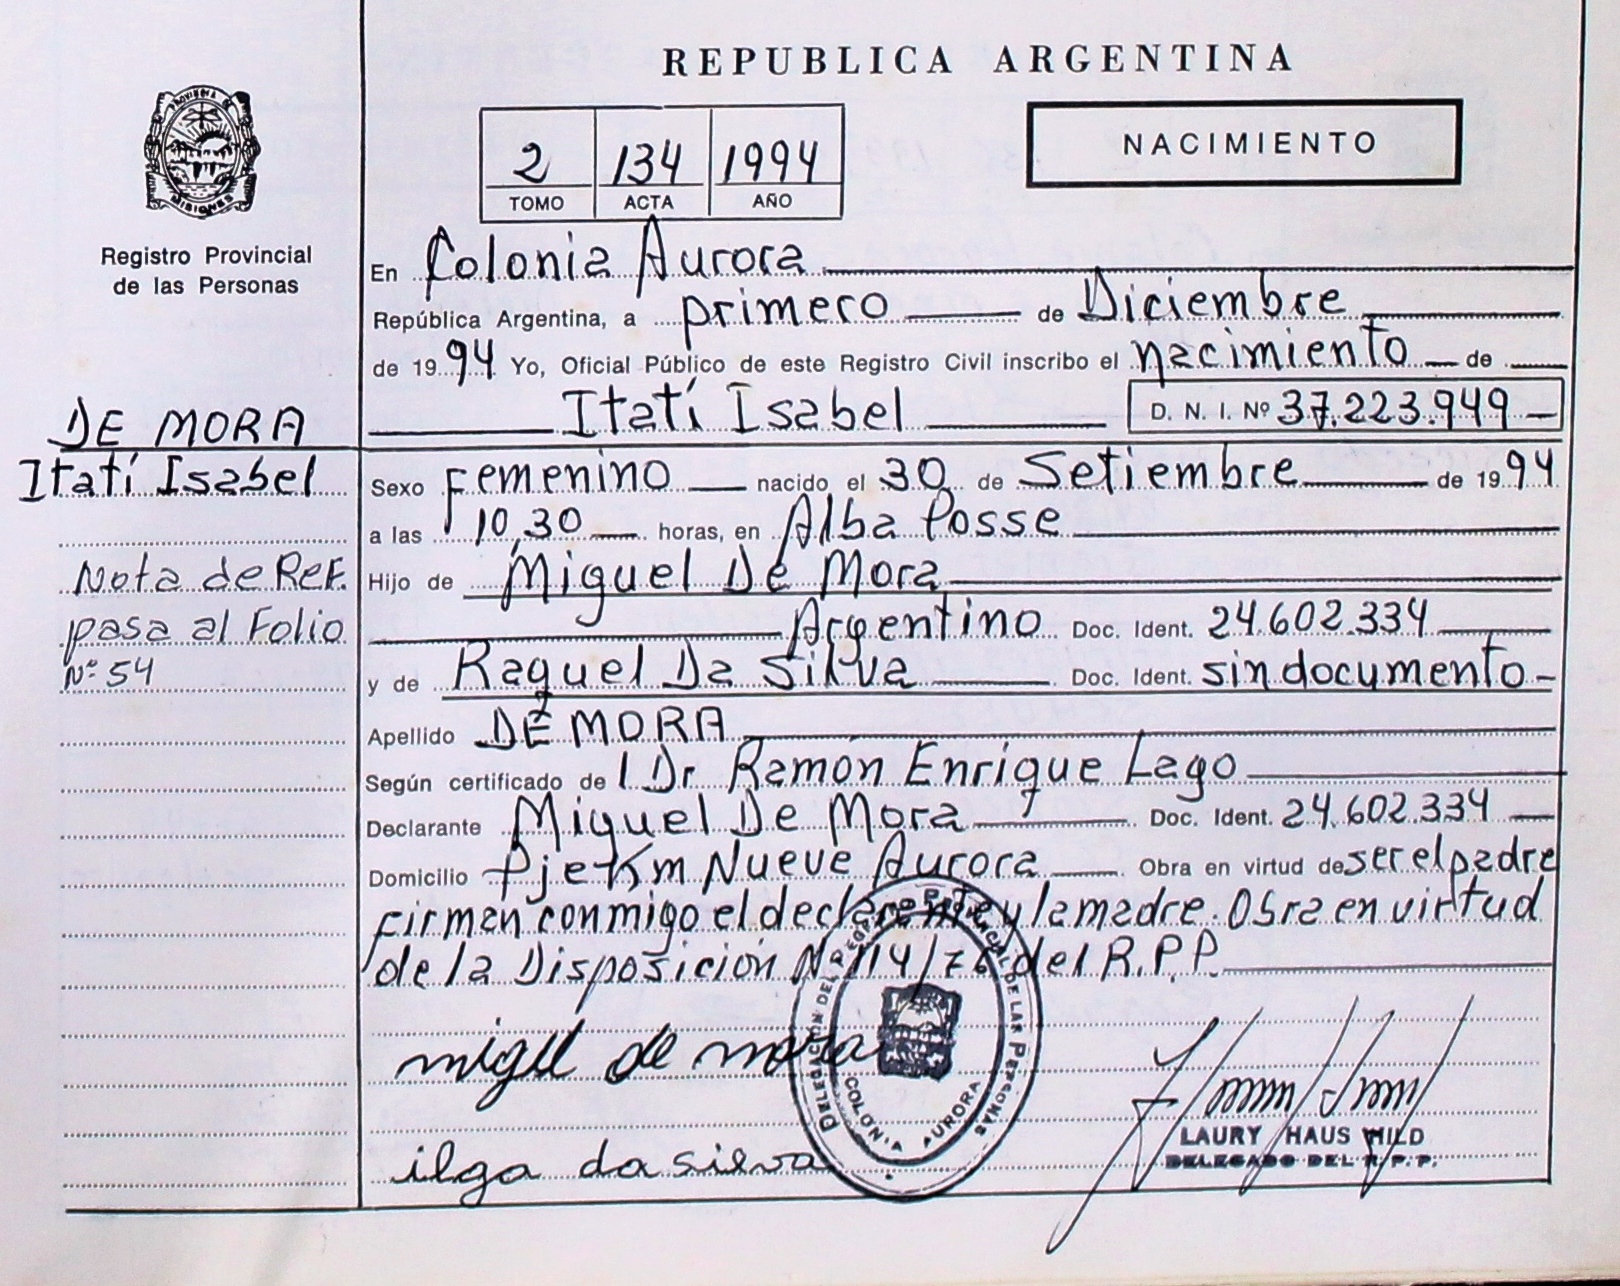 REPUBLICA ARGENTINA
PROVINCIA DE MISIONES
Registro Provincial
de las Personas
2 134 1994
TOMO ACTA AÑO
NACIMIENTO
En Colonia Aurora
República Argentina, a primero de Diciembre
de 1994 Yo, Oficial Público de este Registro Civil inscribo el nacimiento de
Itatí Isabel D. N. I. Nº 37.223.949
DE MORA
Itatí Isabel
Nota de Ref.
pasa al Folio
Nº 54
Sexo Femenino nacido el 30 de Setiembre de 1994
a las 10,30 horas, en Alba Posse
Hijo de Miguel De Mora
Argentino Doc. Ident. 24.602.334
y de Raquel Da Silva Doc. Ident. sin documento
Apellido DE MORA
Según certificado del Dr. Ramón Enrique Lago
Declarante Miguel De Mora Doc. Ident. 24.602.334
Domicilio Pje Km Nueve Aurora Obra en virtud de ser el padre
Firman conmigo el declarante y la madre. Obra en virtud
de la Disposición Nº 114/76 del R.P.P.
migel de mora
ilga da silva
DELEGACIÓN DEL REGISTRO PROVINCIAL DE LAS PERSONAS
COLONIA AURORA
LAURY HAUS WILD
DELEGADO DEL R.P.P.